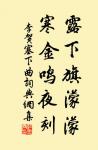 露下旗濛濛
寒金鳴夜刻
李賀塞下曲詞典網集